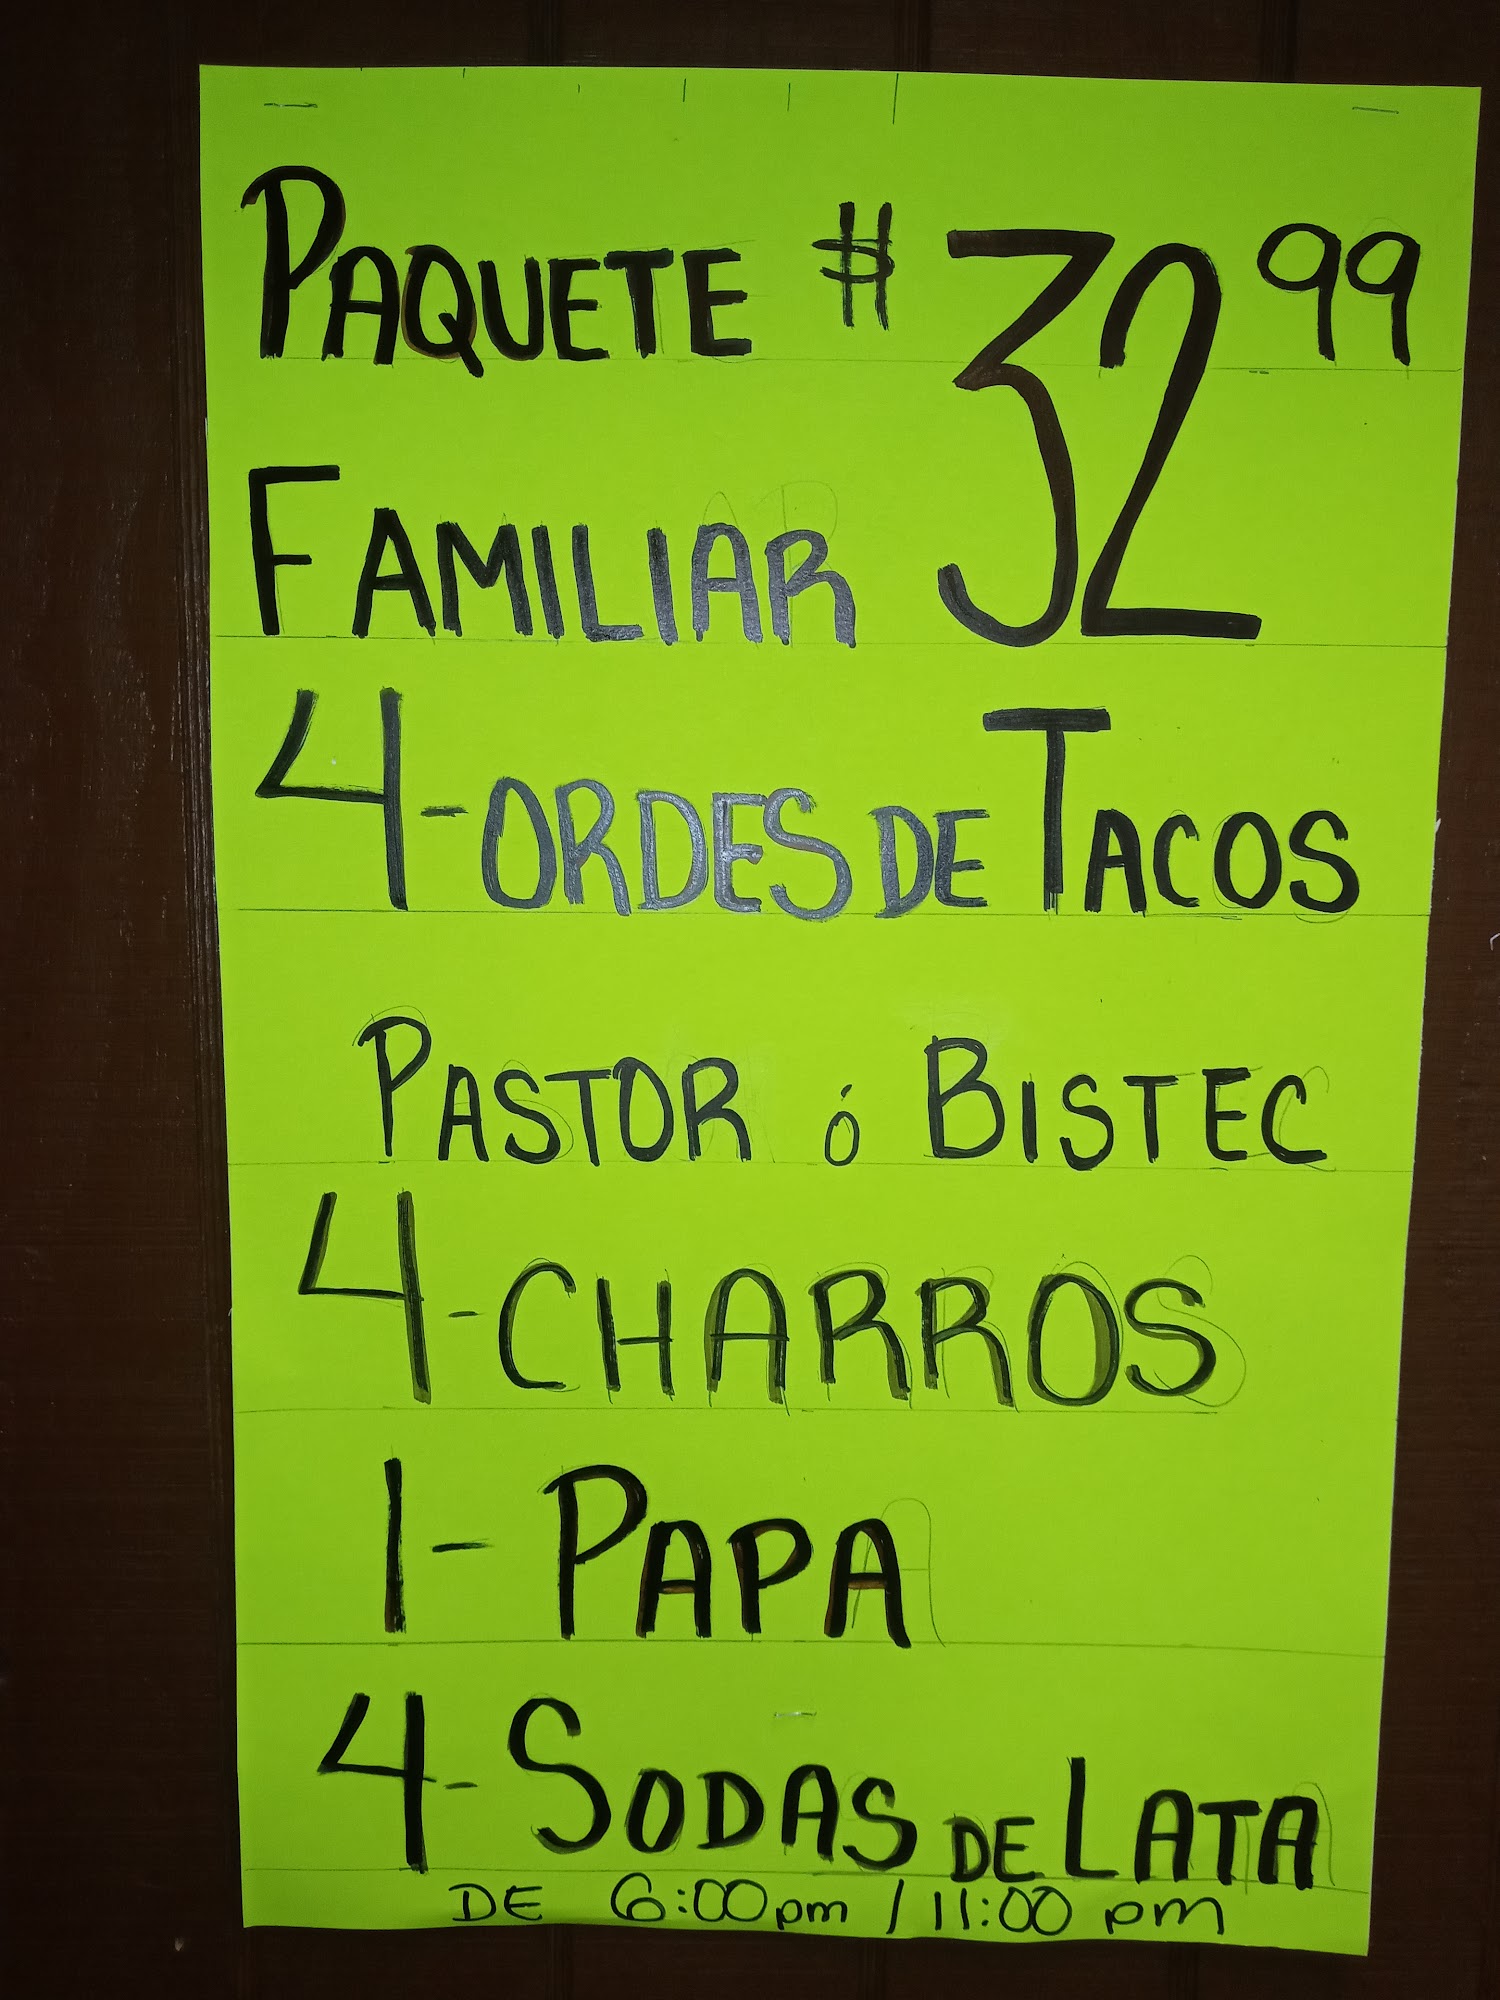 PAQUETE $32.99
FAMILIAR
4-ORDES DE TACOS
PASTOR ó BISTEC
4-CHARROS
1-PAPA
4-SODAS DE LATA
DE 6:00pm / 11:00 pm